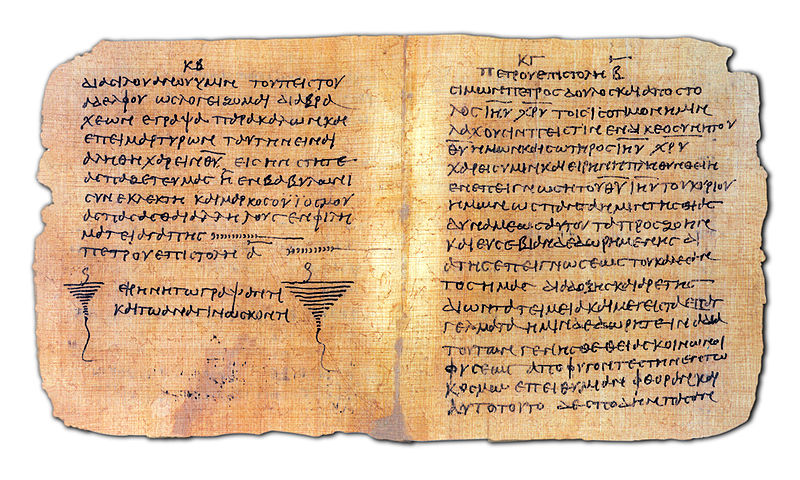 ΚΒ
ΔΙΑ ϹΙΛΟΥΑΝΟΥ ΥΜΙΝ ΤΟΥ ΠΕΙϹΤΟΥ
ΑΔΕΛΦΟΥ ΩϹ ΛΟΓΕΙΖΟΜΑΙ ΔΙΑ ΒΡΑ
ΧΕΩΝ ΕΓΡΑΨΑ ΠΑΡΑΚΑΛΩΝ ΚΑΙ
ΕΠΕΙΜΑΡΤΥΡΩΝ ΤΑΥΤΗΝ ΕΙΝΑΙ
ΑΛΗΘΗ ΧΑΡΕΙΝ Θ̅Υ̅ ΕΙϹ ΗΝ ϹΤΗΤΕ
ΑϹΠΑΖΕΤΕ ΥΜΑϹ Η ΕΝ ΒΑΒΥΛΩΝΙ
ϹΥΝΕΚΛΕΚΤΗ ΚΑΙ ΜΑΡΚΟϹ Ο ΥΙΟϹ ΜΟΥ
ΑϹΠΑϹΑϹΘΑΙ ΑΛΛΗΛΟΥϹ ΕΝ ΦΙΛΗ
ΜΑΤΕΙ ΑΓΑΠΗϹ
ΠΕΤΡΟΥ ΕΠΙϹΤΟΛΗ Α̅
ΕΙΡΗΝΗ ΤΩ ΓΡΑΨΑΝΤΙ
ΚΑΙ ΤΩ ΑΝΑΓΙΝΩϹΚΟΝΤΙ
ΚΓ
ΠΕΤΡΟΥ ΕΠΙϹΤΟΛΗ Β̅
ϹΙΜΩΝ ΠΕΤΡΟϹ ΔΟΥΛΟϹ ΚΑΙ ΑΠΟϹΤΟ
ΛΟϹ Ι̅Η̅Υ̅ Χ̅Ρ̅Υ̅ ΤΟΙϹ ΙϹΟΤΙΜΟΝ ΗΜΙΝ
ΛΑΧΟΥϹΙΝ ΠΕΙϹΤΙΝ ΕΝ ΔΙΚΕΟϹΥΝΗ ΤΟΥ
Θ̅Υ̅ ΗΜΩΝ ΚΑΙ ϹΩΤΗΡΟϹ Ι̅Η̅Υ̅ Χ̅Ρ̅Υ̅
ΧΑΡΕΙϹ ΥΜΙΝ ΚΑΙ ΕΙΡΗΝΗ ΠΛΗΘΥΝΘΕΙΗ
ΕΝ ΕΠΕΙΓΝΩϹΗ ΤΟΥ Θ̅Υ̅ Ι̅Η̅Υ̅ ΤΟΥ ΚΥΡΙΟΥ
ΗΜΩΝ ΩϹ ΠΑΝΤΑ ΗΜΙΝ ΤΗϹ ΘΙΑϹ
ΔΥΝΑΜΕΩϹ ΑΥΤΟΥ ΤΑ ΠΡΟϹ ΖΩΗΝ
ΚΑΙ ΕΥϹΕΒΙΑΝ ΔΕΔΩΡΗΜΕΝΗϹ ΔΙ
Α ΤΗϹ ΕΠΕΙΓΝΩϹΕΩϹ ΤΟΥ ΚΑΛΕϹΑΝ
ΤΟϹ ΗΜΑϹ ΔΙΑ ΔΟΞΗϹ ΚΑΙ ΑΡΕΤΗϹ
ΔΙ ΩΝ ΤΑ ΤΕΙΜΕΙΑ ΚΑΙ ΜΕΓΕΙϹΤΑ ΕΠΑΓ
ΓΕΛΜΑΤΑ ΗΜΙΝ ΔΕΔΩΡΗΤΕ ΙΝΑ ΔΙΑ
ΤΟΥΤΩΝ ΓΕΝΗϹΘΕ ΘΕΙΑϹ ΚΟΙΝΩΝΟΙ
ΦΥϹΕΩϹ ΑΠΟΦΥΓΟΝΤΕϹ ΤΗΝ ΕΝ ΤΩ
ΚΟϹΜΩ ΕΠΕΙΘΥΜΙΑΝ ΦΘΟΡΑΝ ΚΑΙ
ΑΥΤΟ ΤΟΥΤΟ ΔΕ ϹΠΟΔΗΝ ΠΑϹΑΝ